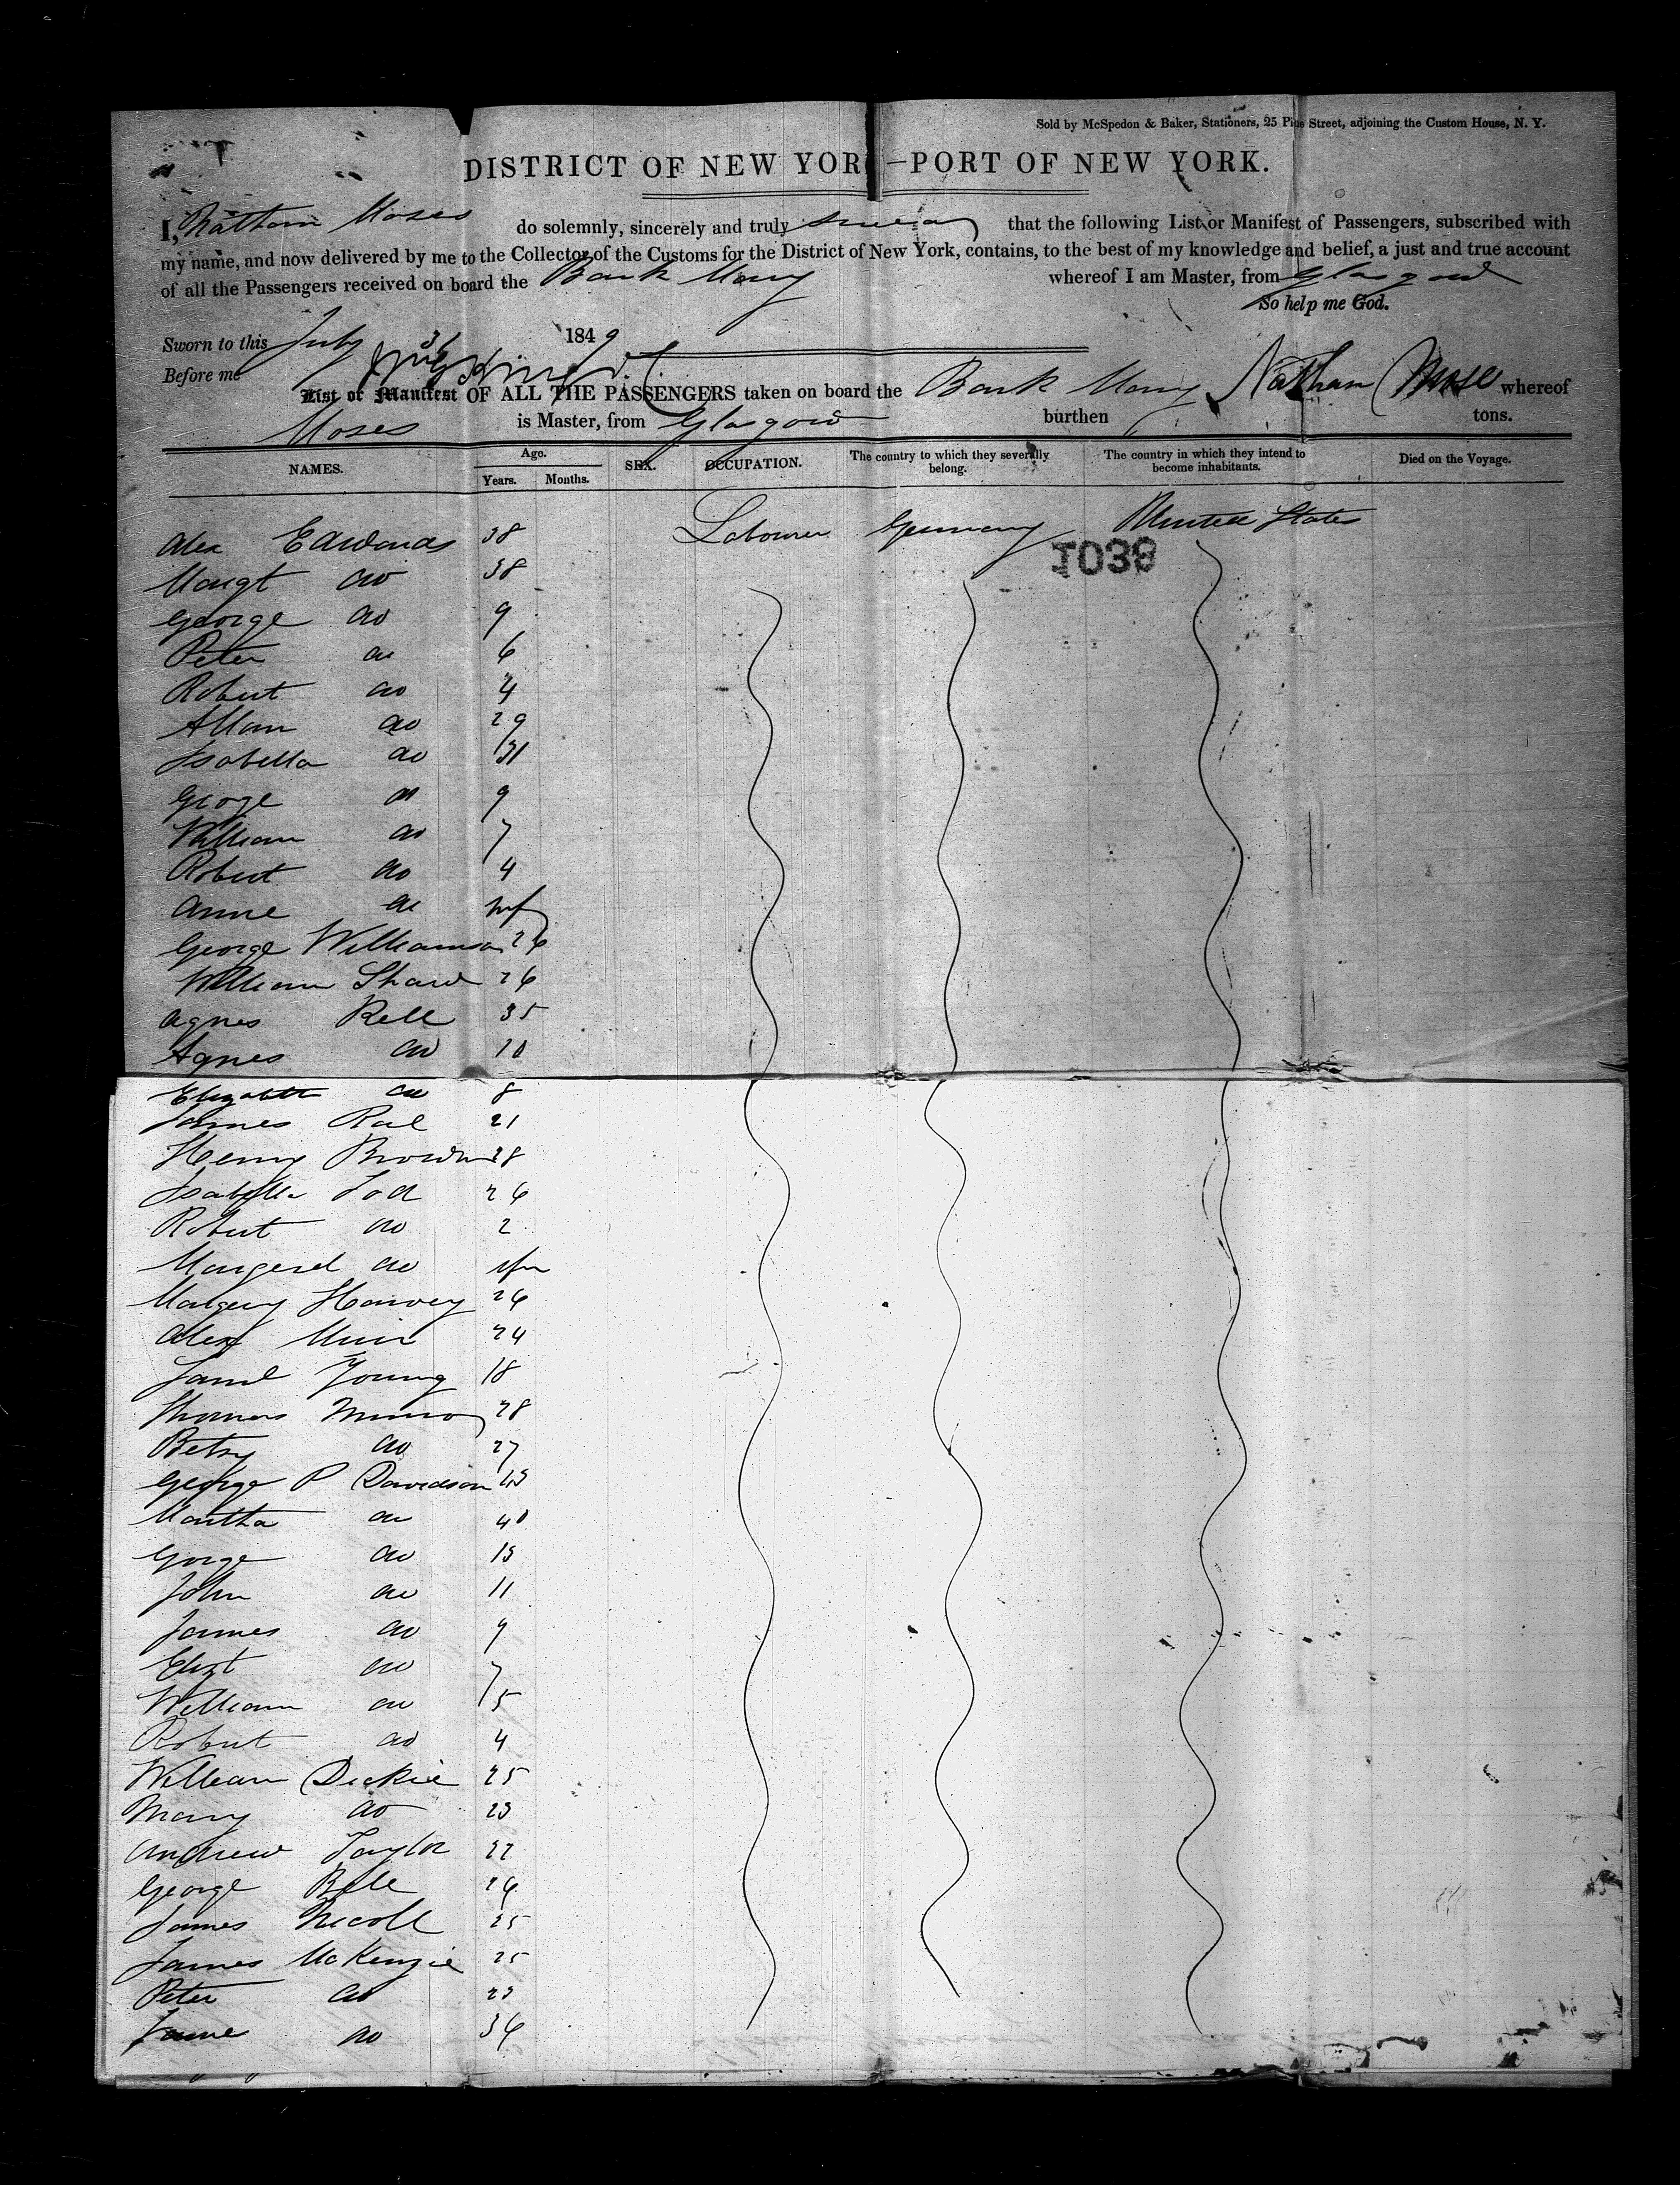 Sold by McSpedon & Baker, Stationers, 25 Pine Street, adjoining the Custom House, N. Y.
DISTRICT OF NEW YORK—PORT OF NEW YORK.
I, Nathan Moses do solemnly, sincerely and truly swear that the following List or Manifest of Passengers, subscribed with
my name, and now delivered by me to the Collector of the Customs for the District of New York, contains, to the best of my knowledge and belief, a just and true account
of all the Passengers received on board the Bark Mary whereof I am Master, from Glasgow
So help me God.
Sworn to this July 1849
Before me
List or Manifest OF ALL THE PASSENGERS taken on board the Bark Mary Nathan Moses whereof
Moses is Master, from Glasgow burthen tons.
NAMES. Age. Years. Months. SEX. OCCUPATION. The country to which they severally belong. The country in which they intend to become inhabitants. Died on the Voyage.
Alex Edwards 38 Labourer Germany United States
1038
Margt do 38
George do 9
Peter do 6
Robert do 4
Allan do 29
Isabella do 31
George do 9
William do 7
Robert do 4
Anne do inf
George Williamson 26
William Shaw 26
Agnes Bell 35
Agnes do 10
Elizabeth do 8
James Rae 21
Henry Brown 28
Isabella Tod 26
Robert do 2
Margeret do inf
Margery Harvey 26
Alex Muir 24
Young 18
Thomas Munro 28
Betsy do 27
George P Davidson 43
Martha do 40
Gorge do 13
John do 11
James do 9
Elizt do 7
William do 5
Robert do 4
William Dickie 25
Mary do 23
Andrew Taylor 22
George Bell 26
James Nicoll 25
James McKenzie 25
Peter do 23
Jane do 36